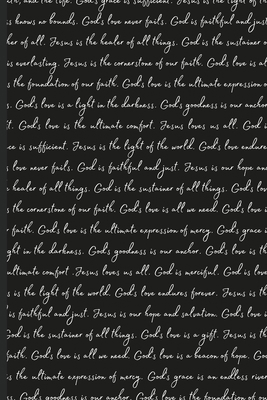 and the life. God's grace is sufficient. Jesus is the light of th
s knows no bounds. God's love never fails. God is faithful and just
her of all. Jesus is the healer of all things. God is the sustainer o
is everlasting. Jesus is the cornerstone of our faith. God's love is
s the foundation of our faith. God's love is the ultimate expression o
s. God's love is a light in the darkness. God's goodness is our anchor
t. God's love is the ultimate comfort. Jesus loves us all. God i
ce is sufficient. Jesus is the light of the world. God's love endure
s love never fails. God is faithful and just. Jesus is our hope an
e healer of all things. God is the sustainer of all things. God's
s the cornerstone of our faith. God's love is all we need. God's love i
r faith. God's love is the ultimate expression of mercy. God's grace i
ght in the darkness. God's goodness is our anchor. God's love is th
ultimate comfort. Jesus loves us all. God is merciful. God's love is
s is the light of the world. God's love endures forever. Jesus is th
is faithful and just. Jesus is our hope and salvation. God's love i
God is the sustainer of all things. God's love is a gift. Jesus is th
faith. God's love is all we need. God's love is a beacon of hope. Go
is the ultimate expression of mercy. God's grace is an endless river
s. God's goodness is our anchor. God's love is the foundation of our